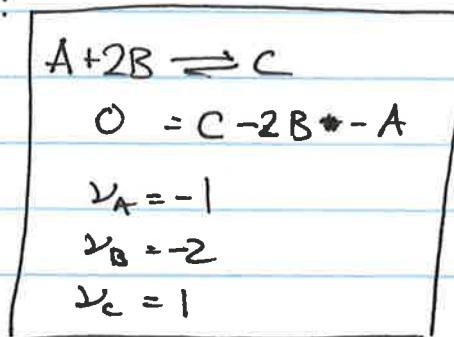 A+2B ⇌ C
0 = C -2B - A
ν_A = -1
ν_B = -2
ν_C = 1